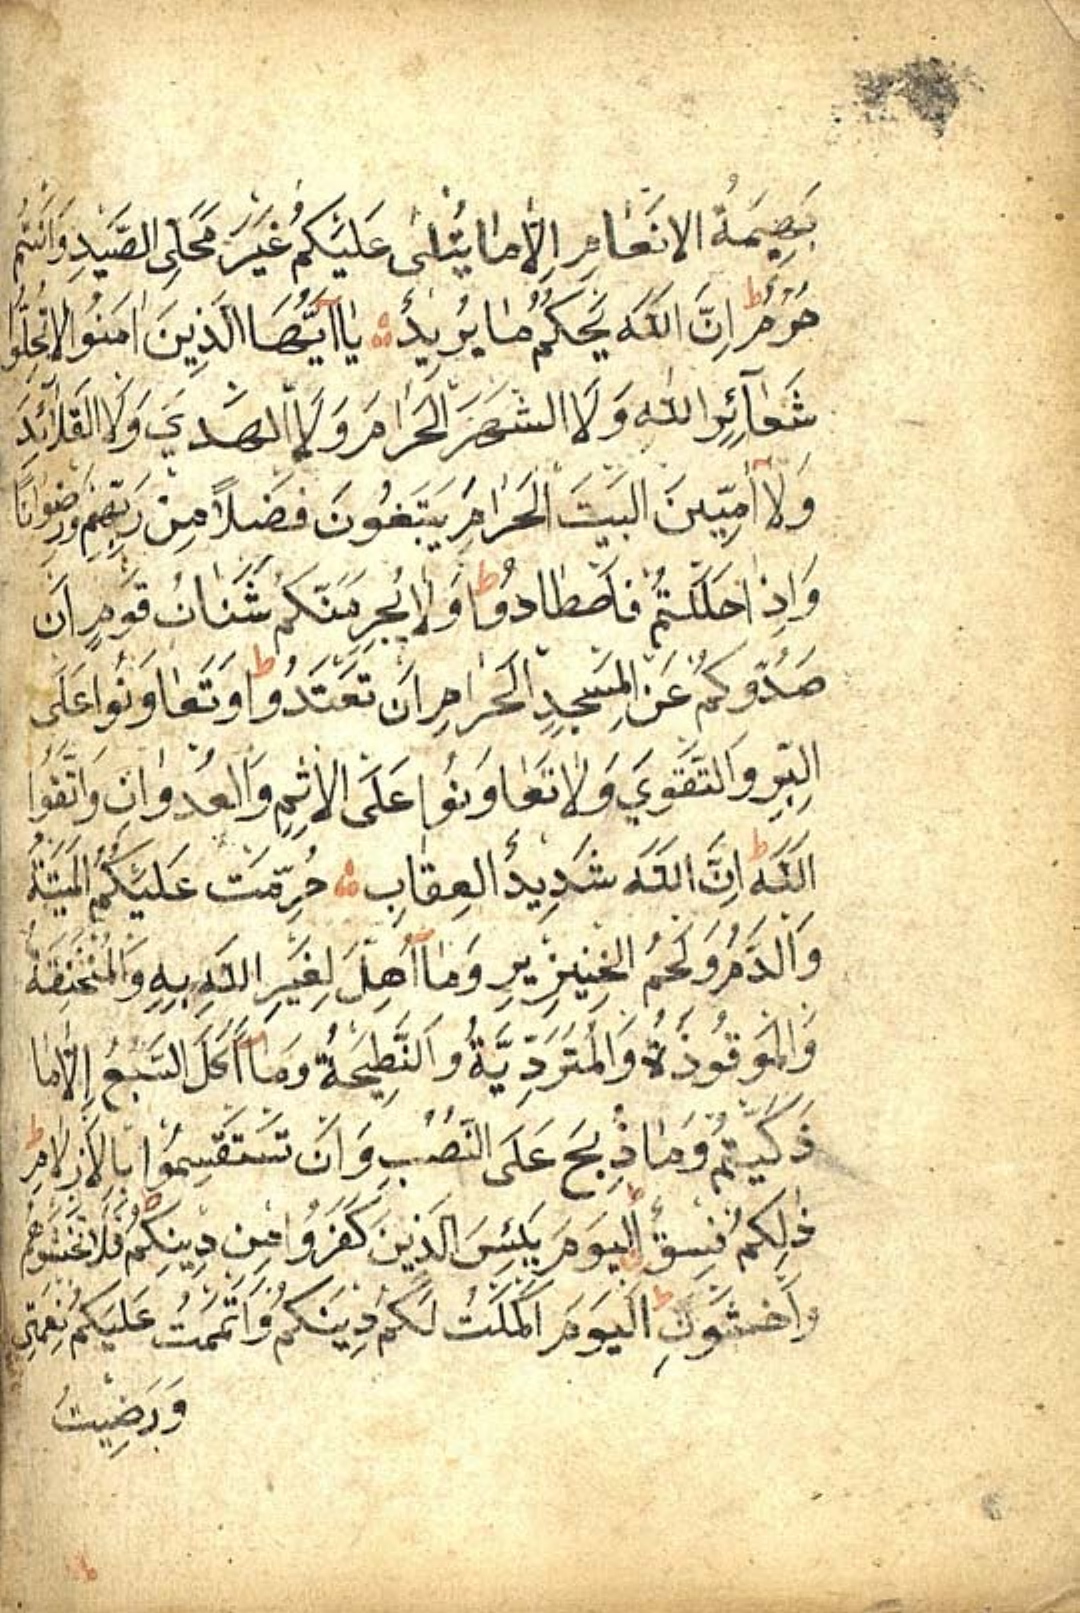 بَهِيمَةُ الانَعَامِ اِلَّا مَا يُتْلىٰ عَلَيْكُمْ غَيْرَ مُحَلِّى الصَّيْدِ وَاَنْتُمْ
حُرُمٌ ط اِنَّ اللّٰهَ يَحْكُمُ مَا يُرِيدُ يَا اَيُّهَا الَّذِينَ اٰمَنُوا لَا تُحِلُّوا
شَعَآئِرَ اللّٰهِ وَلَا الشَّهْرَ الْحَرَامَ وَلَا الْهَدْيَ وَلَا الْقَلَآئِدَ
وَلَا آمِّينَ الْبَيْتَ الْحَرَامَ يَبْتَغُونَ فَضْلًا مِنْ رَبِّهِمْ وَرِضْوَانًا
وَاِذَا حَلَلْتُمْ فَاصْطَادُوا ط وَلَا يَجْرِمَنَّكُمْ شَنَاٰنُ قَوْمٍ اَنْ
صَدُّوكُمْ عَنِ الْمَسْجِدِ الْحَرَامِ اَنْ تَعْتَدُوا ط وَتَعَاوَنُوا عَلَى
الْبِرِّ وَالتَّقْوَي وَلَا تَعَاوَنُوا عَلَى الْاِثْمِ وَالْعُدْوَانِ وَاتَّقُوا
اللّٰهَ ط اِنَّ اللّٰهَ شَدِيدُ الْعِقَابِ حُرِّمَتْ عَلَيْكُمُ الْمَيْتَةُ
وَالدَّمُ وَلَحْمُ الْخِنْزِيرِ وَمَآ اُهِلَّ لِغَيْرِ اللّٰهِ بِهِ وَالْمُنْخَنِقَةُ
وَالْمَوْقُوذَةُ وَالْمُتَرَدِّيَةُ وَالنَّطِيحَةُ وَمَآ اَكَلَ السَّبُعُ اِلَّا مَا
ذَكَّيْتُمْ وَمَا ذُبِحَ عَلَى النُّصُبِ وَاَنْ تَسْتَقْسِمُوا بِالْاَزْلَامِ ط
ذٰلِكُمْ فِسْقٌ ط اَلْيَوْمَ يَئِسَ الَّذِينَ كَفَرُوا مِنْ دِينِكُمْ فَلَا تَخْشَوْهُمْ
وَاخْشَوْنِ ط اَلْيَوْمَ اَكْمَلْتُ لَكُمْ دِينَكُمْ وَاَتْمَمْتُ عَلَيْكُمْ نِعْمَتِي
وَرَضِيتُ